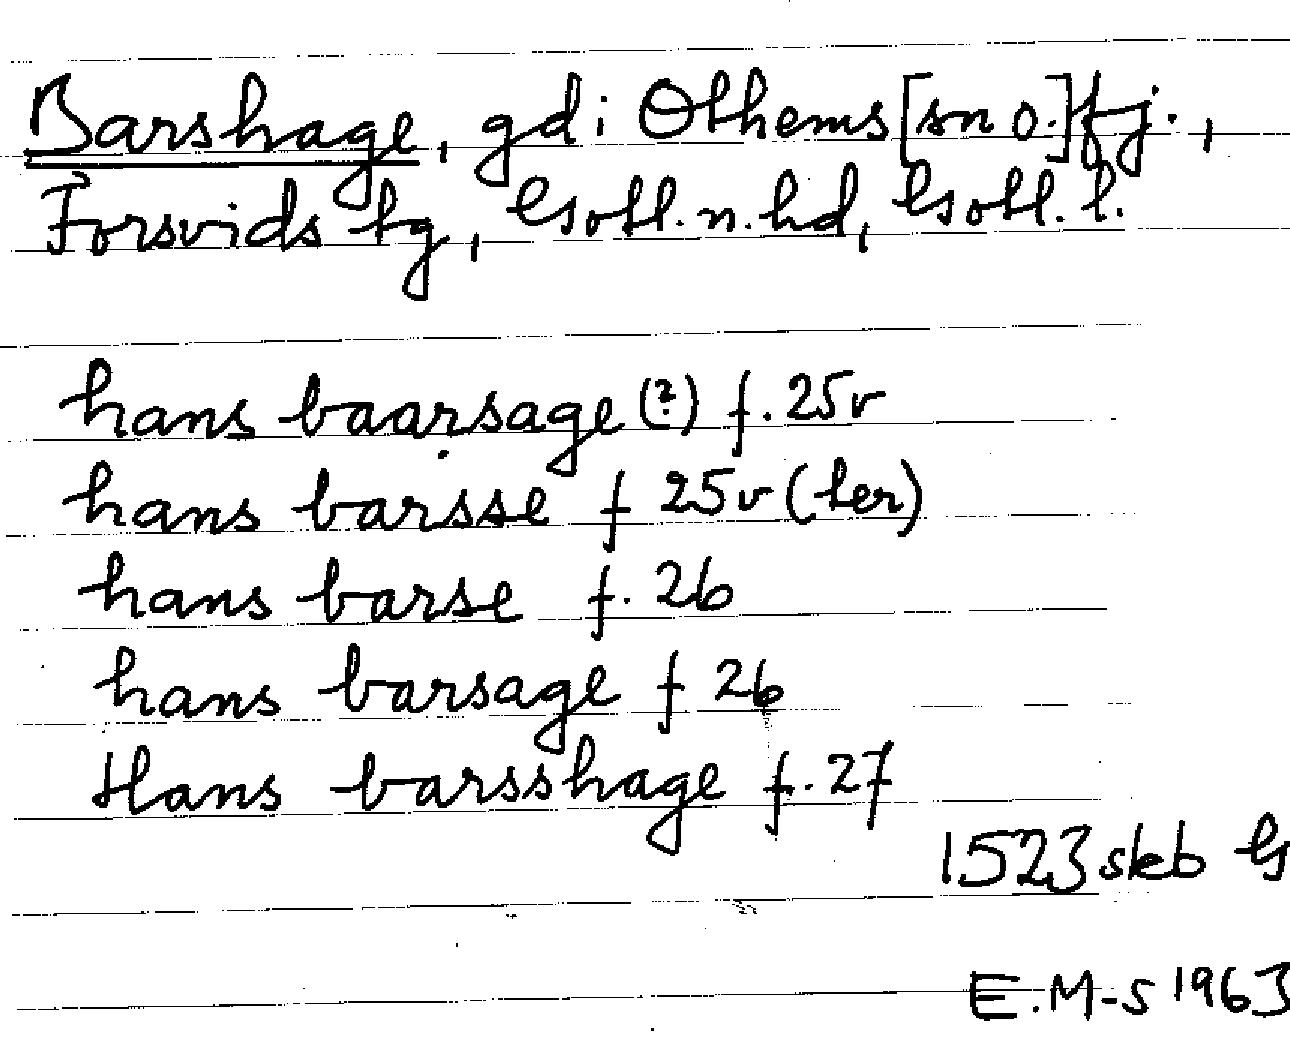 Barshage, gd i Othems [sn o.] fj.,
Forsvids tg, Gotl. n. hd, Gotl. l.
hans baarsage (?) f. 25v
hans barsse f 25v (ter)
hans barse f. 26
hans barsage f 26
Hans barsshage f. 27
1523 skb G
E.M-S 1963